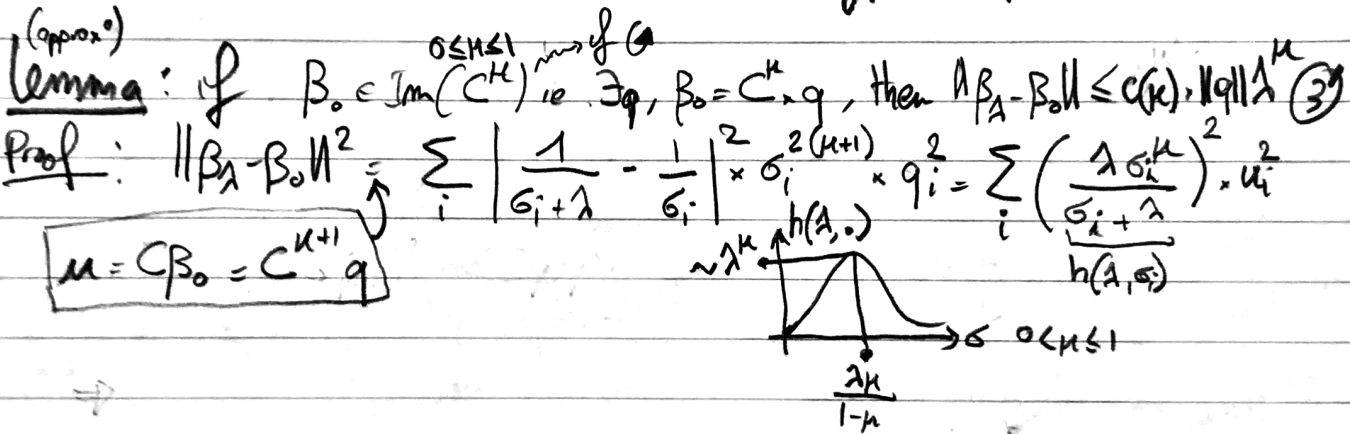 (approx°)
Lemma: if β₀ ∈ Im(C^μ) ie ∃q, β₀ = C^μ × q, then ‖β_λ - β₀‖ ≤ c(μ).‖q‖λ^μ (3)
0≤μ≤1 ⇝ if
Proof: ‖β_λ - β₀‖² = Σ_i |1/(σ_i+λ) - 1/σ_i|² × σ_i^{2(μ+1)} × q_i² = Σ_i (λσ_i^μ/(σ_i+λ))² × u_i²
h(λ,σ_i)
u = Cβ₀ = C^{μ+1}. q
h(λ,.)
~λ^μ
σ 0<μ≤1
λμ/(1-μ)
⇒